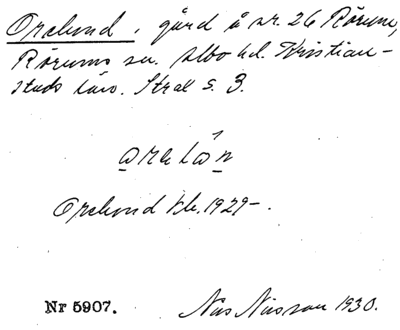 Orelund, gård å nr. 26 Rörum,
Rörums sn. Albo hd. Kristian-
stads län. Stral s. 3.
Orelund Kb. 1929-.
Nr 5907. Nils Nilsson 1930.